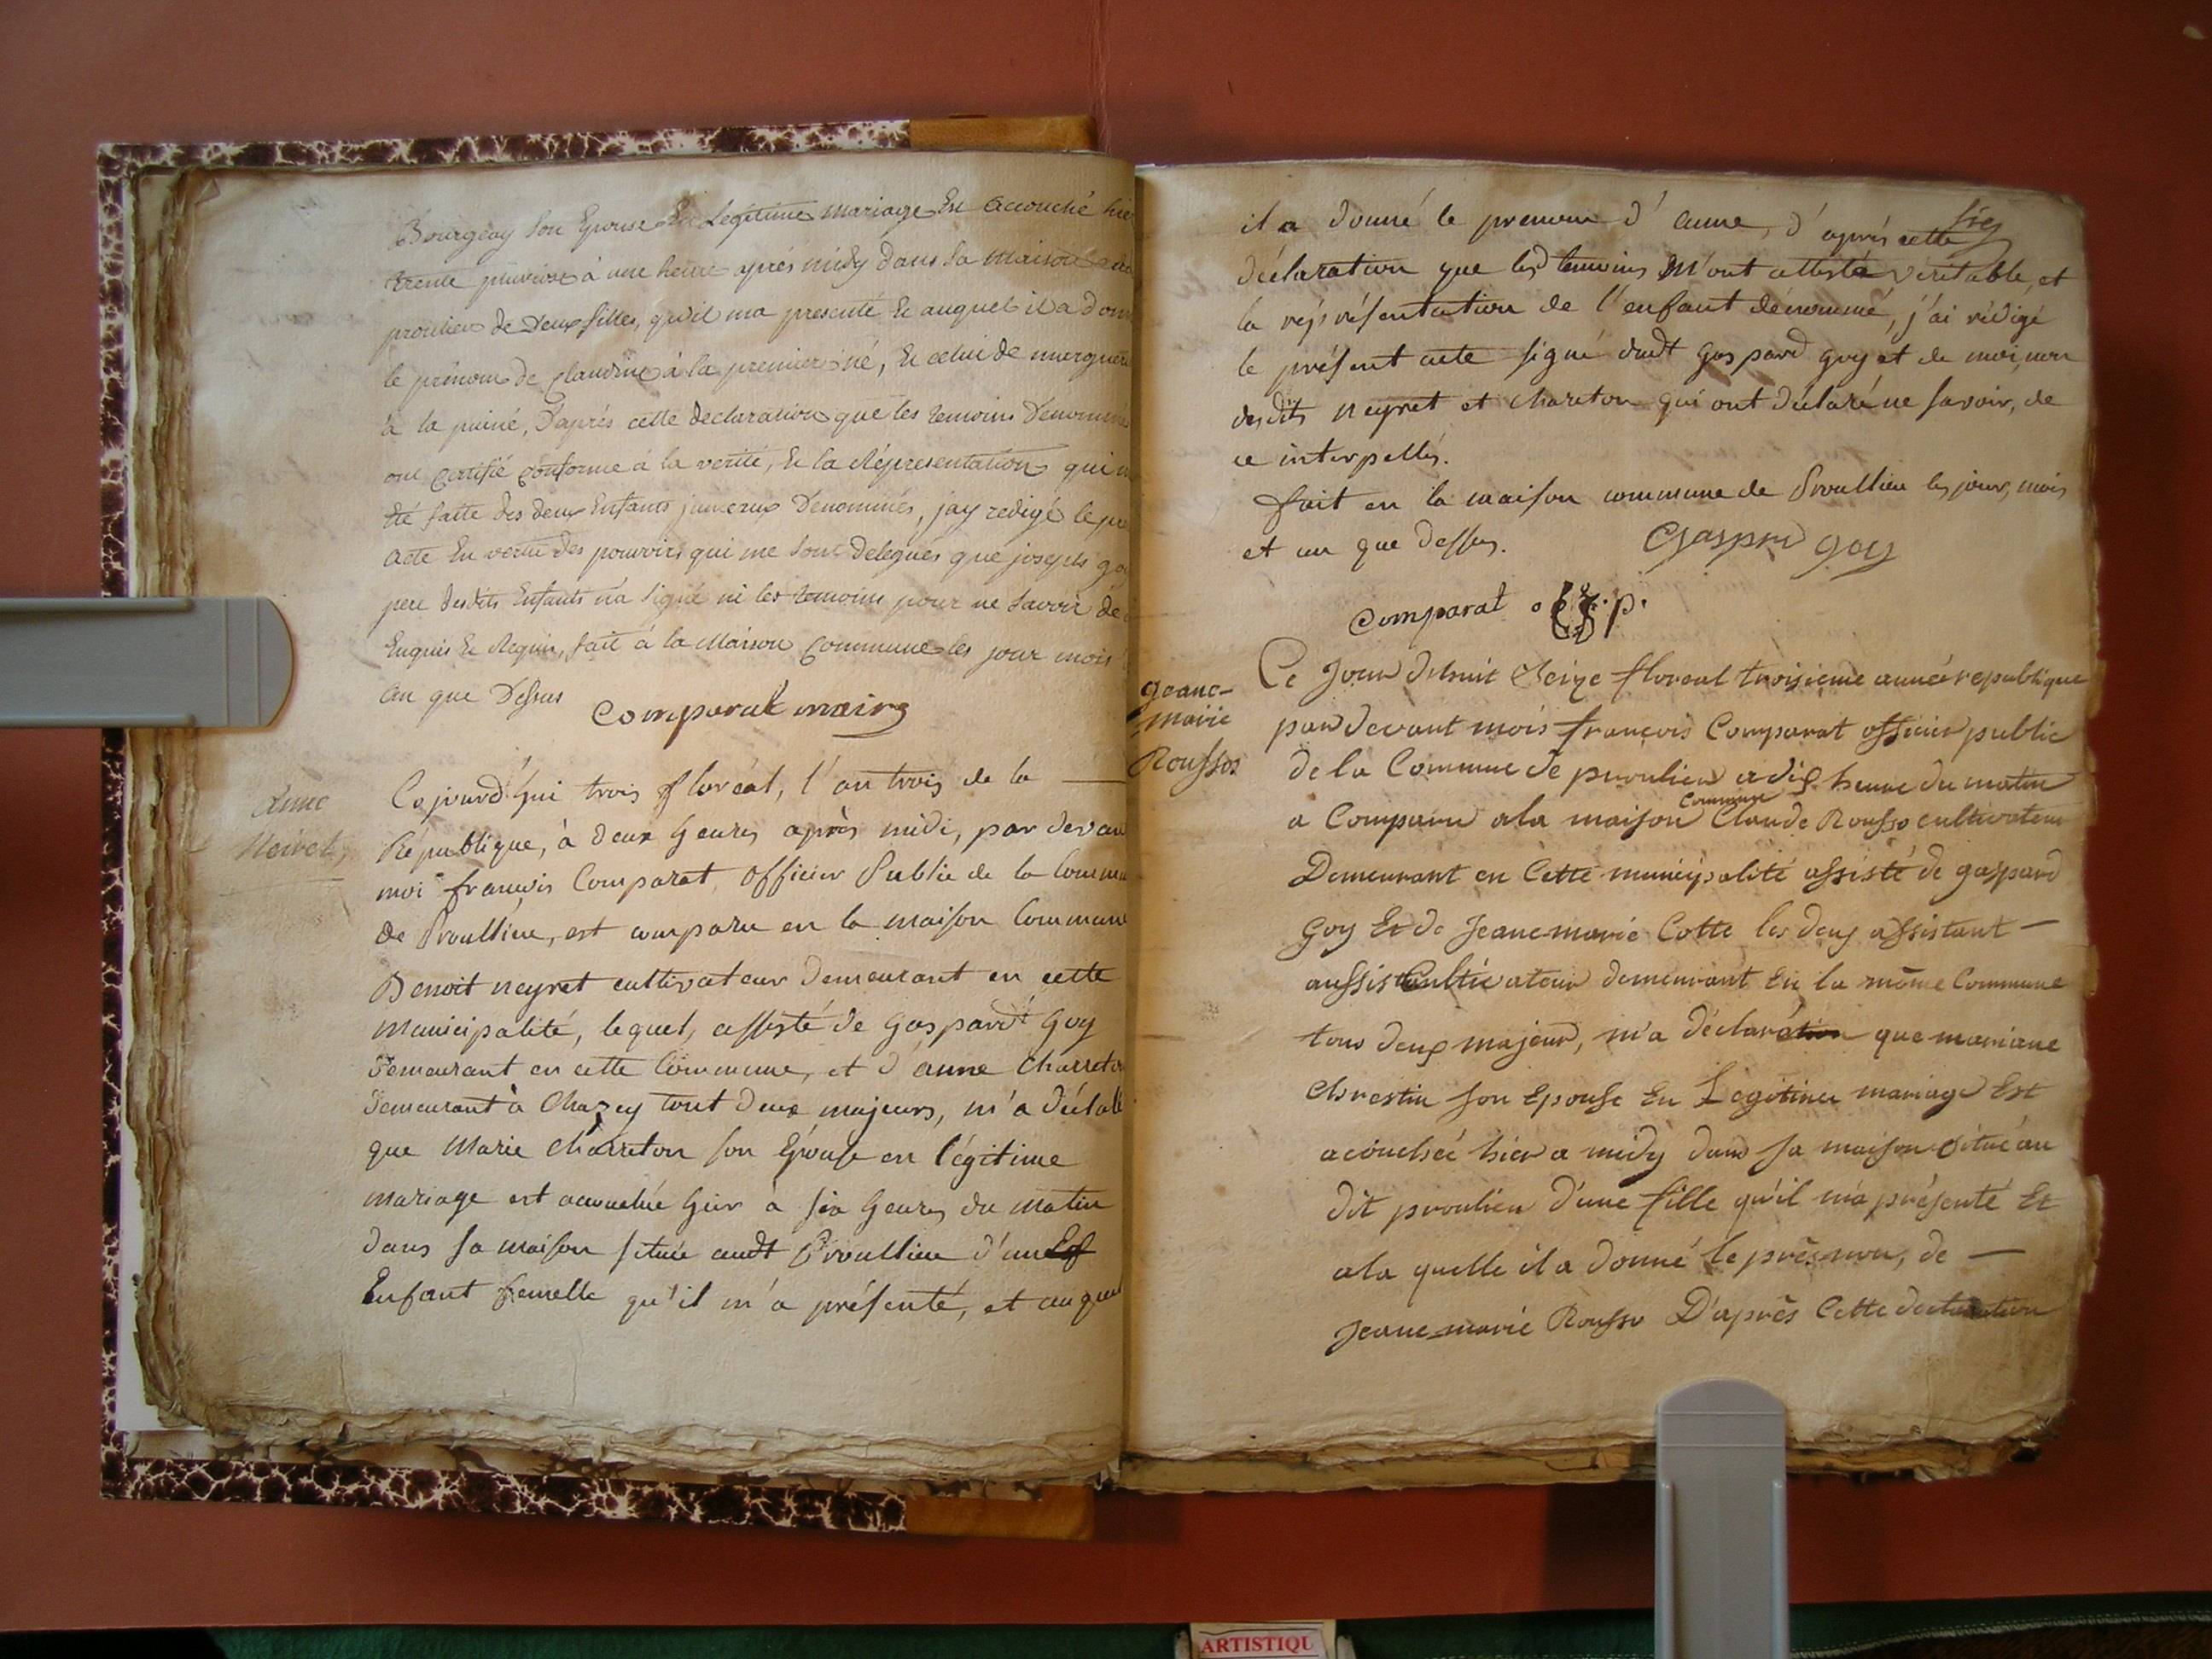 Bourgeay son Epouse En Legitime mariage Est accouché hie
trente pluviose à une heure après midy dans sa maison
proulieu de Deux filles, qu'il ma presenté Et auquel il a donn
le prénom de Claudine à la premiere né, Et celui de marguer
à la puiné, D'après cette declaration que les temoins Denommé
ont certifié conforme à la verité, Et la Répresentation qui m
été faite des deux Enfants jumeaux Dénommés, jay redigé le pre
acte En vertu des pouvoirs qui me sont delegués que joseph go
pere desdits Enfants na signé ni les temoins pour ne savoir de
Enquis Et Requis, fait à la Maison Commune les jour mois
an que Dessus
Comparat maire
Anne
Neiret
Cejourd'hui trois floréal, l'an trois de la
République, à deux heures après midi, par devan
moi françois Comparat officier Public de la Commu
de Proullieu, est comparu en la maison Commune
Benoit neyret cultivateur demeurant en cette
municipalité, lequel, assisté de Gaspard Goy
demeurant en cette Commune, et d'anne Charreton
demeurant à Chazey tout deux majeurs, m'a déclaré
que Marie Charreton son Epouse en légitime
mariage est accouchée hier à six heures du matin
dans sa maison située audt Proullieu d'un Enf
Enfant femelle qu'il m'a présenté, et auquel
il a donné le prenom d'anne, d'après cette
déclaration que lesd temoins m'ont attesté véritable, et
la représentation de l'enfant dénommé, j'ai rédigé
le présent acte signé dudt Gaspard goy et de moi, non
desdits neyret et Chareton qui ont déclaré ne savoir, de
ce interpellés.
fait en la maison commune de Proullieu les jour, mois
et an que dessus.
Gaspard goy
Comparat o.p.
Jeane-
marie
Roussos
Ce Jour dehuit Seize floreal troisieme année republique
pardevant mois françois Comparat officier public
de la Commune de proulieu a dix heure du matin
a Comparu a la maison Commune Claude Rousso cultivateur
Demeurant en Cette municipalité assisté de gaspard
Goy Et de Jeanemarie Cotte les deux assistant
aussis Cultivateur demeurant En la même Commune
tous deux majeur, m'a déclaration que mariane
Chrestin son Epouse En Legitime mariage Est
acouchée hier a midy dans sa maison situé au
dit proulieu d'une fille qu'il m'a présenté Et
a la quelle il a donné le prénom, de
Jeane-marie Rousso D'après Cette declaration
ARTISTIQU